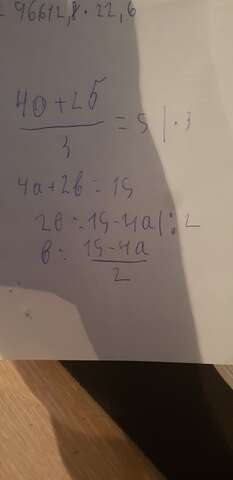 96612,8 · 22,6
4a+2b
/3 = 5 | · 3
4a+2b = 15
2b = 15-4a | : 2
b = 15-4a
/2